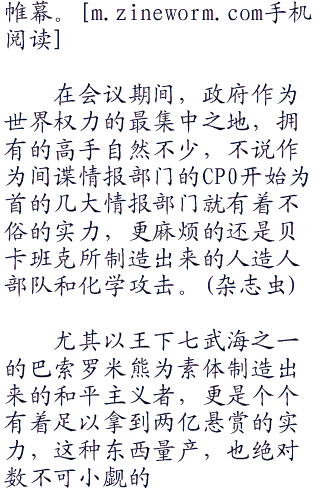 帷幕。[m.zineworm.com手机
阅读]
在会议期间，政府作为
世界权力的最集中之地，拥
有的高手自然不少，不说作
为间谍情报部门的CP0开始为
首的几大情报部门就有着不
俗的实力，更麻烦的还是贝
卡班克所制造出来的人造人
部队和化学攻击。(杂志虫)
尤其以王下七武海之一
的巴索罗米熊为素体制造出
来的和平主义者，更是个个
有着足以拿到两亿悬赏的实
力，这种东西量产，也绝对
数不可小觑的